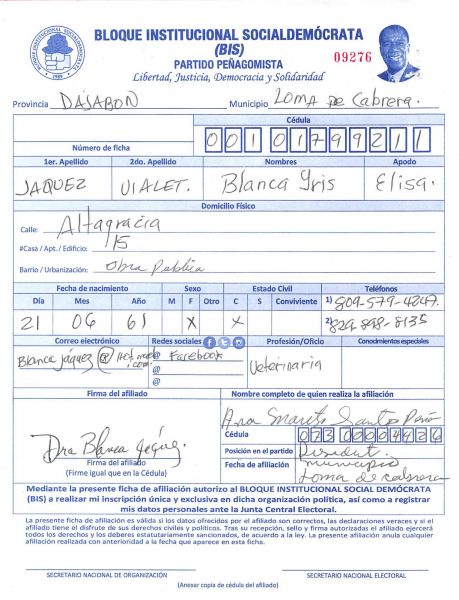 BLOQUE INSTITUCIONAL SOCIALDEMÓCRATA
(BIS)
PARTIDO PEÑAGOMISTA
09276
Libertad, Justicia, Democracia y Solidaridad
Provincia DAJABON Municipio LOMA DE Cabrera.
Cédula
Número de ficha 00101799211
1er. Apellido 2do. Apellido Nombres Apodo
JAQUEZ VIALET. Blanca Iris Elisa.
Domicilio Físico
Calle: Altagracia
#Casa / Apt. / Edificio: 15
Barrio / Urbanización: Obra Publica
Fecha de nacimiento Sexo Estado Civil Teléfonos
Día Mes Año M F Otro C S Conviviente 1) 809-579-4247.
21 06 61 X X 2) 829-898-8135
Correo electrónico Redes sociales Profesión/Oficio Conocimientos especiales
Blanca jáquez @ Hotmail .com. @ Facebook Veterinaria
@
@
Firma del afiliado Nombre completo de quien realiza la afiliación
Ana Santos
Cédula 07300004426
Dra Blanca Jáquez
Posición en el partido President.
Firma del afiliado Fecha de afiliación municipio
(Firme igual que en la Cédula) Loma de cabrera
Mediante la presente ficha de afiliación autorizo al BLOQUE INSTITUCIONAL SOCIAL DEMÓCRATA
(BIS) a realizar mi inscripción única y exclusiva en dicha organización política, así como a registrar
mis datos personales ante la Junta Central Electoral.
La presente ficha de afiliación es válida si los datos ofrecidos por el afiliado son correctos, las declaraciones veraces y si el
afiliado tiene el disfrute de sus derechos civiles y políticos. Tras su recepción, sello y firma autorizados el afiliado ejercerá
todos los derechos y los deberes estatutariamente sancionados, de acuerdo a la ley. La presente afiliación anula cualquier
afiliación realizada con anterioridad a la fecha que aparece en esta ficha.
SECRETARIO NACIONAL DE ORGANIZACIÓN SECRETARIO NACIONAL ELECTORAL
(Anexar copia de cédula del afiliado)